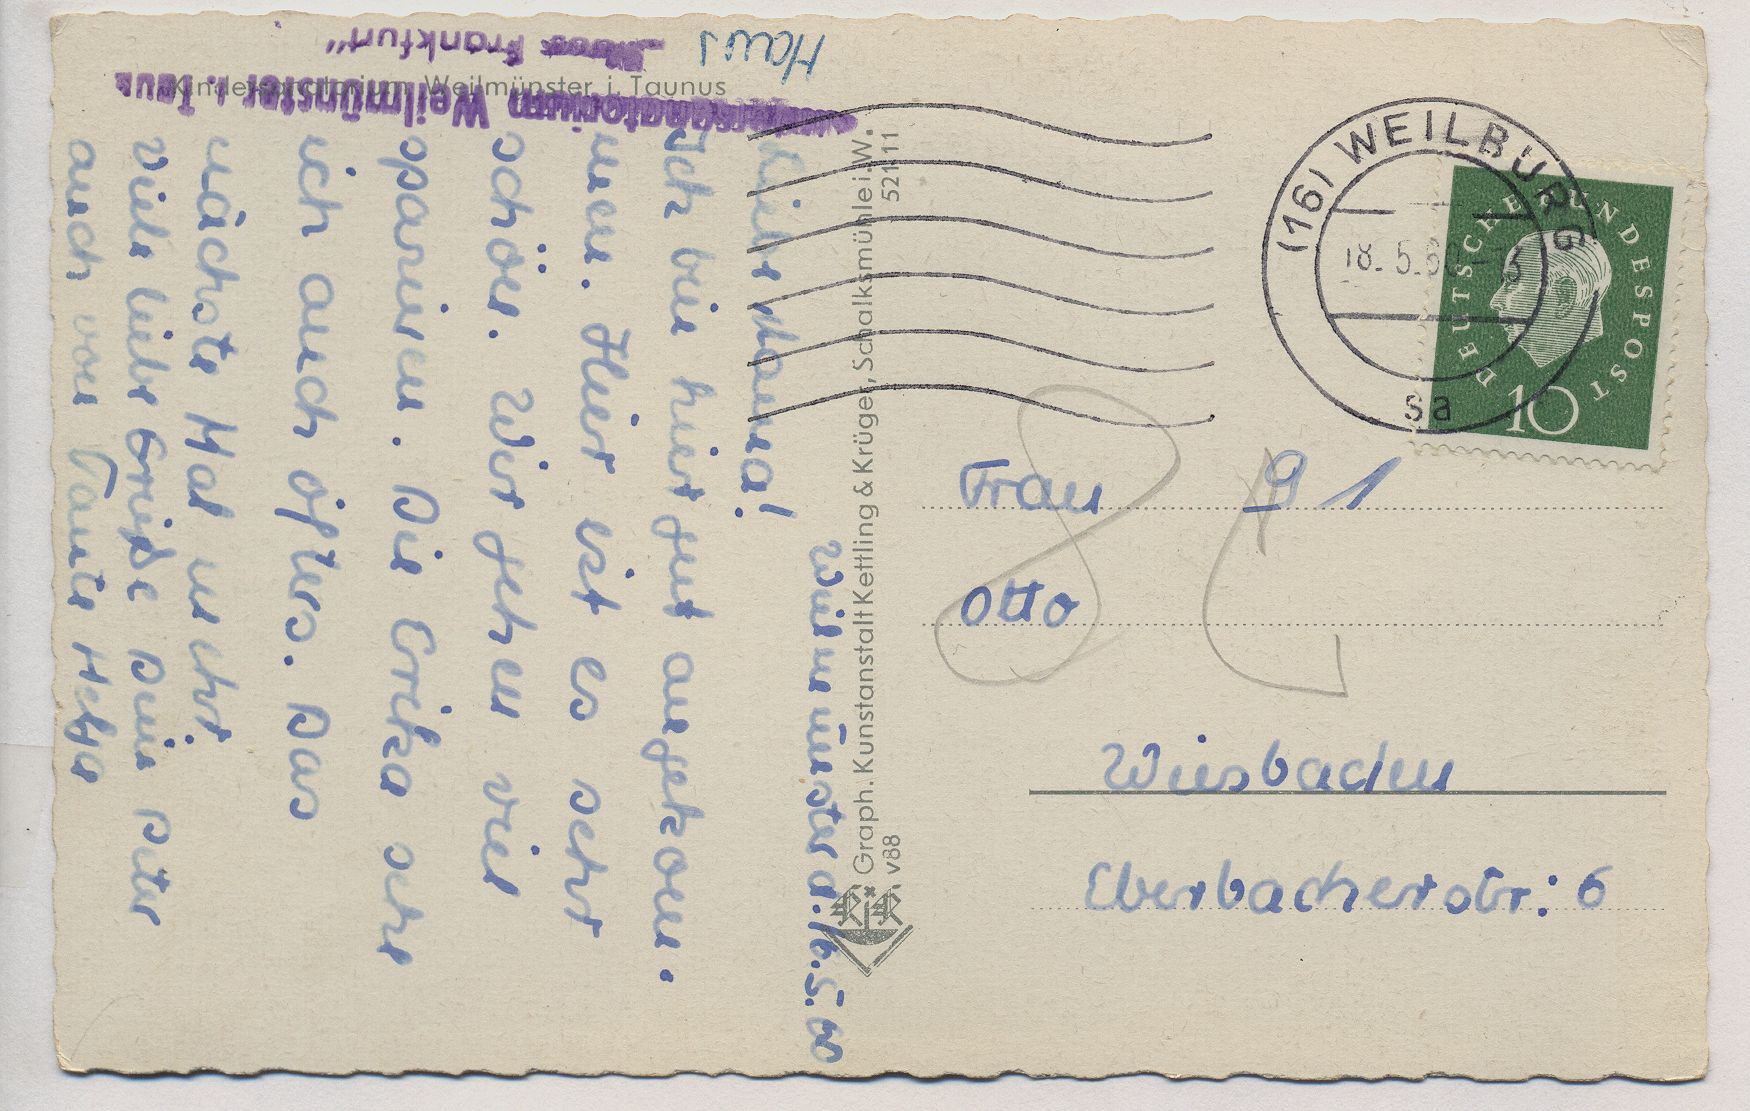 Kindersanatorium Weilmünster i. Taunus
Kindersanatorium Weilmünster i. Taun.
"Haus Frankfurt"
Haus
Weilmünster d. 16.5.60
Liebe Mama!
Ich bin hier gut angekom-
men. Hier ist es sehr
schön. Wir gehen viel
spazieren. Die Erika sehe
ich auch öfters. Das
nächste Mal mehr
Viele liebe Grüße Dein Peter
auch von Tante Hella
Graph. Kunstanstalt Kettling & Krüger, Schalksmühle i. W.
v88
521 11
(16) WEILBURG
18.5.60
sa
DEUTSCHE BUNDESPOST
10
Frau 91
Otto
Wiesbaden
Eberbacherstr: 6